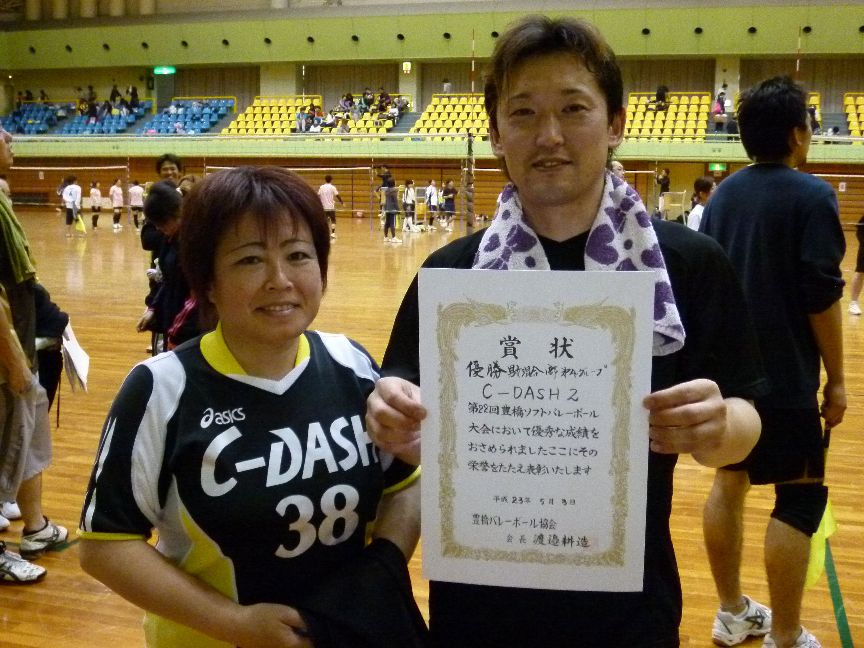 賞状
優勝 男混合の部 第4グループ
C-DASH 2
第22回豊橋ソフトバレーボール
大会において優秀な成績を
おさめられましたここにその
栄誉をたたえ表彰いたします
平成 23年 5月 3日
豊橋バレーボール協会
会長 渡邉耕造
asics
C-DASH
38